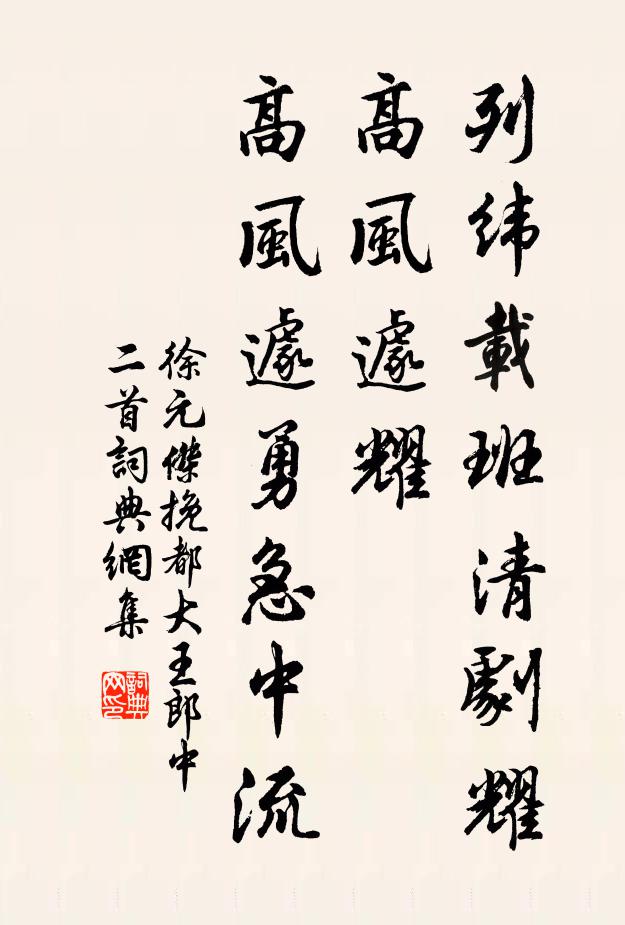 列緯載班清劇耀
高風遽耀
高風遽勇急中流
徐元傑挽都大王郎中
二首詞典網集
詞典網印